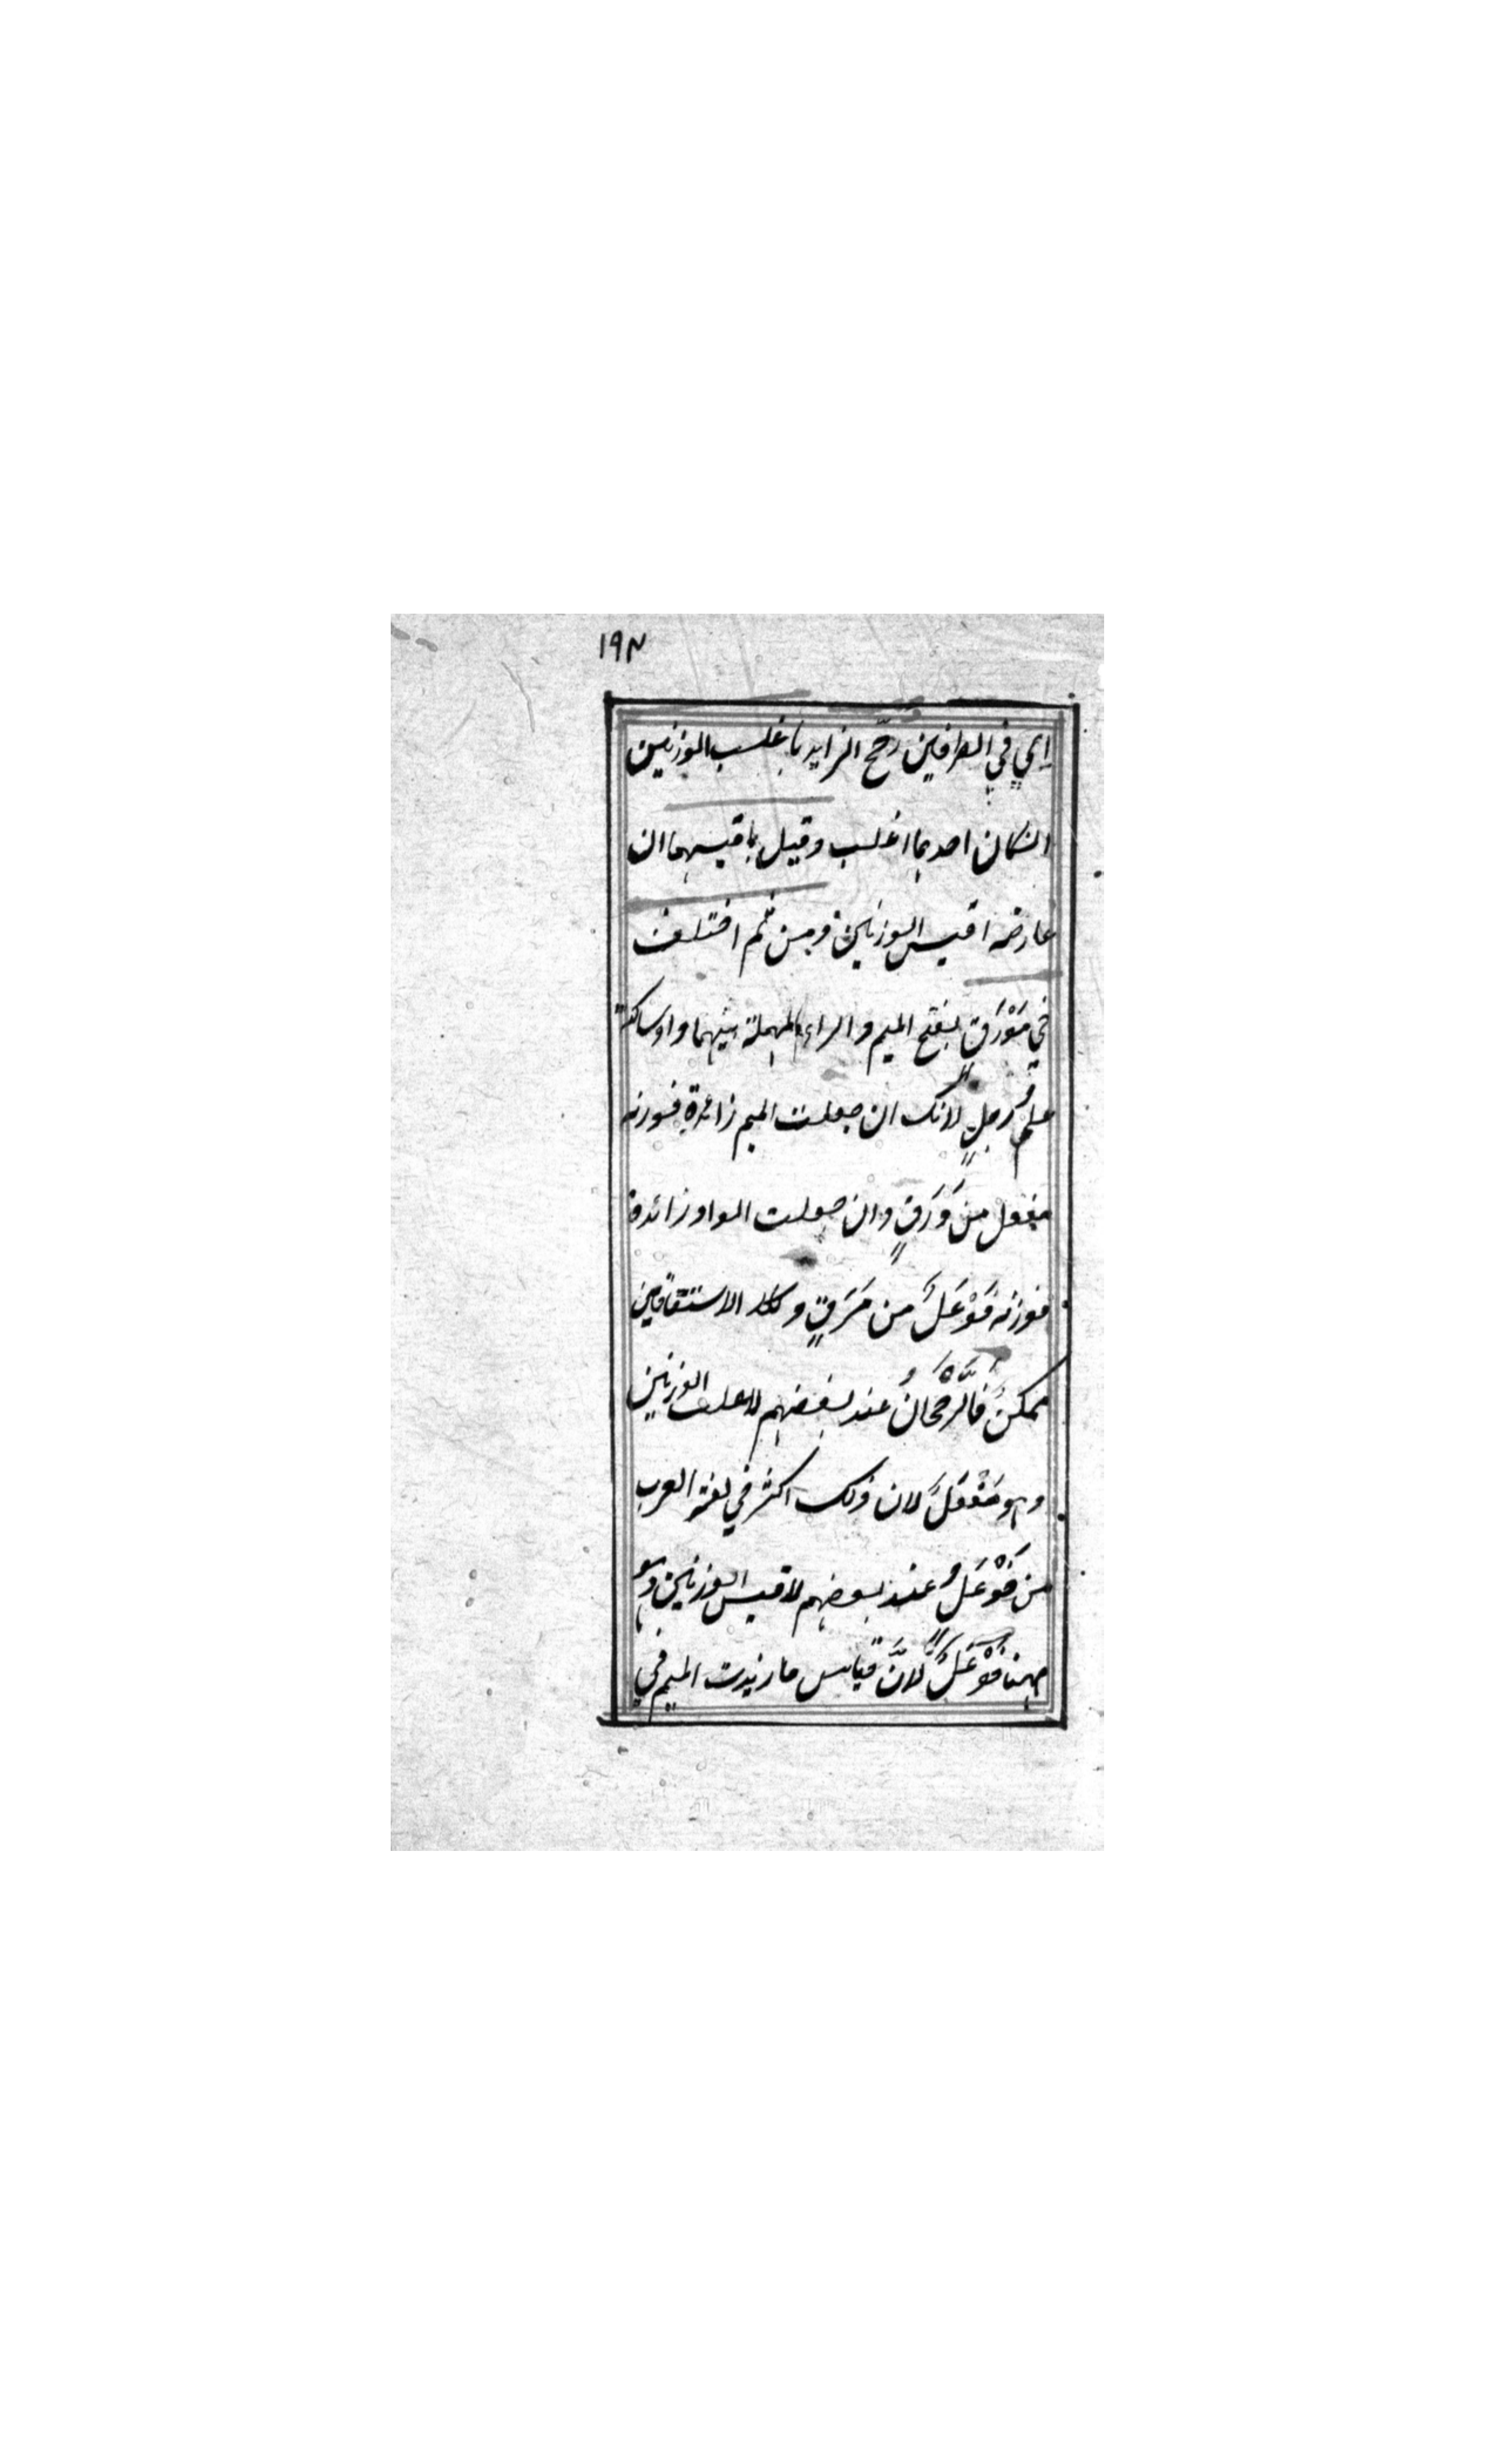 ١٩٣
اي في الطرفين رجّح الزايد باغلب الوزنين
ان كان احدهما اغلب وقيل باقيسهما ان
عارضه اقيس الوزنين ومن ثَم اختلف
في مَوْرَقٍ بفتح الميم والراء المهملة بينهما واو ساكنة
علمُ رجلٍ لانك ان جعلت الميم زائدة فوزنه
مفعل من وَرَقٍ وان جعلت الواو زائدة
فوزنه فَوْعَلٌ من مَرَقٍ وكلا الاشتقاقين
ممكنٌ فالرُّجْحَانُ عند بعضهم لاغلب الوزنين
وهو مَفْعَلٌ لان ذلك اكثر في لغة العرب
من فَوْعَلٍ وعند بعضهم لاقيس الوزنين وهو
ههنا فَوْعَلٌ لانَّ قياس ما زيدت الميم في